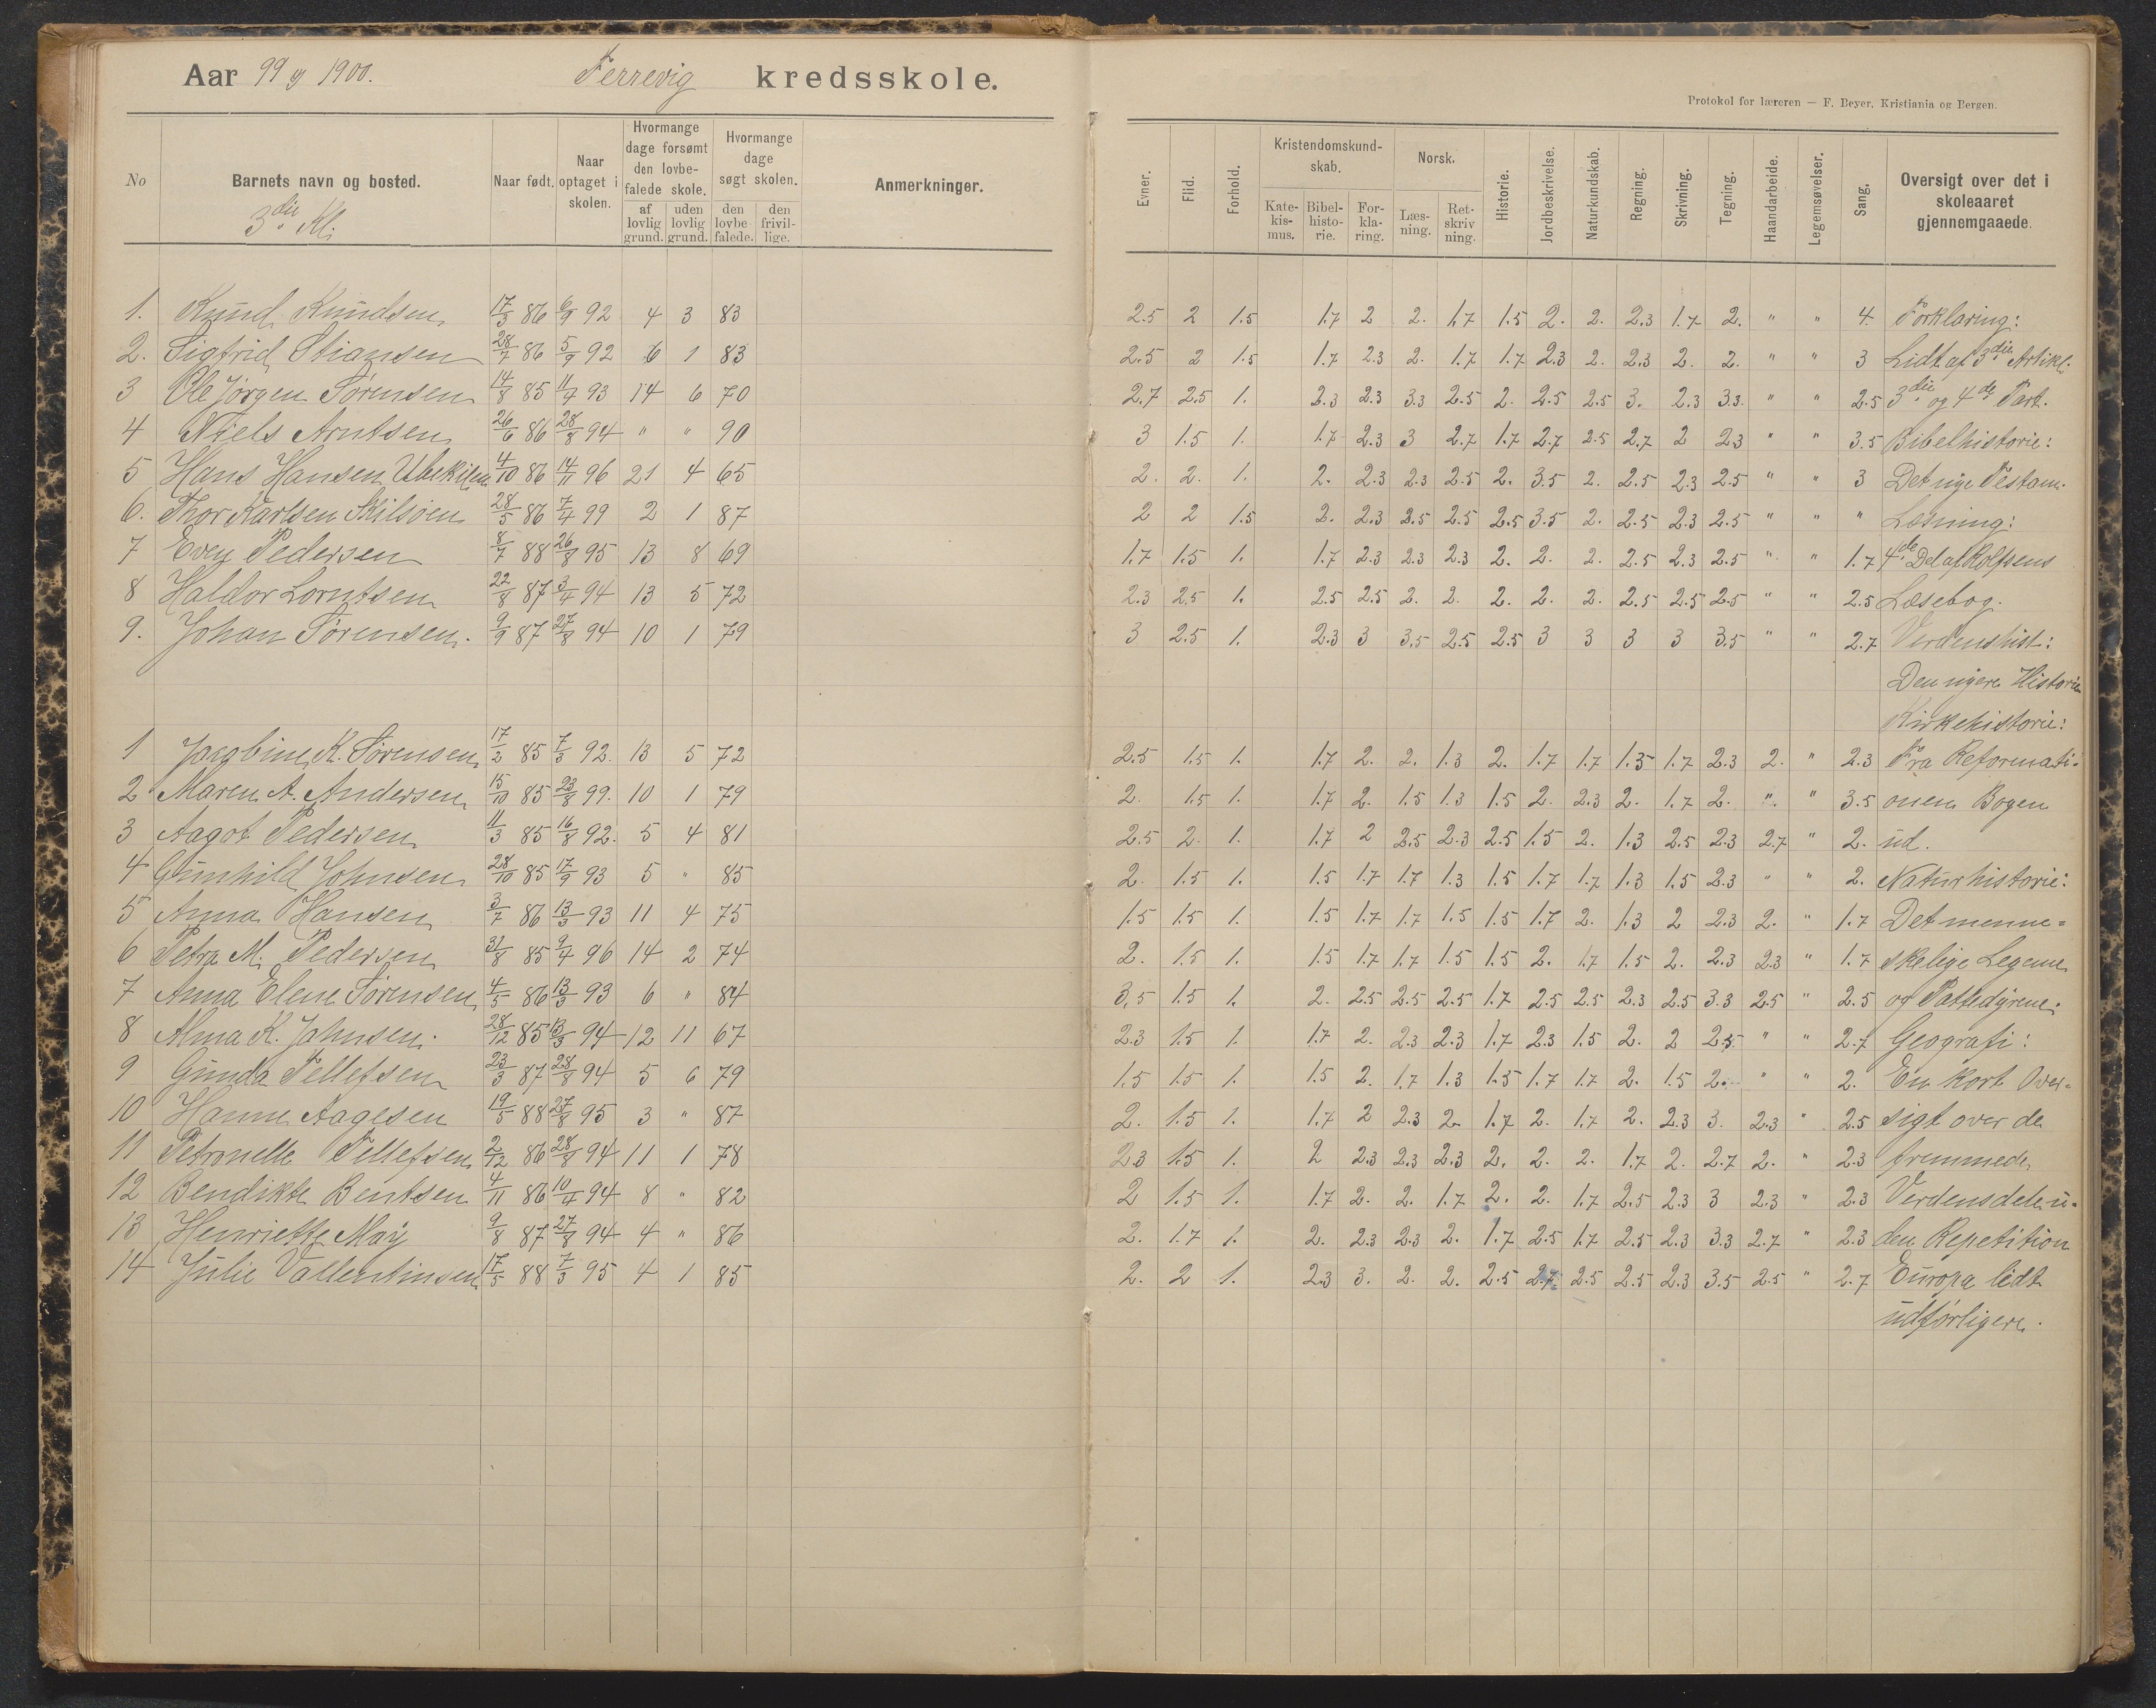 Aar 99 og 1900. Ferrevig kredsskole.
Protokol for læreren — F. Beyer, Kristiania og Bergen.
No | Barnets navn og bosted. | Naar født. | Naar optaget i skolen. | Hvormange dage forsømt den lovbefalede skole. af lovlig grund. uden lovlig grund. | Hvormange dage søgt skolen. den lovbefalede. den frivillige. | Anmerkninger. | Evner. | Flid. | Forhold. | Kristendomskundskab. Katekismus. Bibelhistorie. Forklaring. | Norsk. Læsning. Retskrivning. | Historie. | Jordbeskrivelse. | Naturkundskab. | Regning. | Skrivning. | Tegning. | Haandarbeide. | Legemsøvelser. | Sang. | Oversigt over det i skoleaaret gjennemgaaede.
3die Kl.
1. Knud Knudsen 17/3 86 6/9 92 4 3 83 2.5 2 1.5 1.7 2 2. 1.7 1.5 2. 2. 2.3 1.7 2. " " 4. Forklaring:
2. Sigfrid Stiansen 28/7 86 5/9 92 6 1 83 2.5 2 1.5 1.7 2.3 2. 1.7 1.7 2.3 2. 2.3 2. 2. " " 3 Lidt af 3die Artikl.
3 Ole Jørgen Sørensen 14/8 85 11/4 93 14 6 70 2.7 2.5 1. 2.3 2.3 3.3 2.5 2. 2.5 2.5 3. 2.3 3.3. " " 2.5 3die og 4de Part.
4 Niels Arntsen 26/6 86 28/8 94 " " 90 3 1.5 1. 1.7 2.3 3 2.7 1.7 2.7 2.5 2.7 2 2.3 " " 3.5 Bibelhistorie:
5 Hans Hansen Ubekilen 4/10 86 14/11 96 21 4 65 2. 2. 1. 2. 2.3 2.3 2.5 2. 3.5 2. 2.5 2.3 2.5 " " 3 Det nye Testam.
6. Thor Karlsen Skilsøen 28/5 86 7/4 99 2 1 87 2 2 1.5 2. 2.3 2.5 2.5 2.5 3.5 2. 2.5 2.3 2.5 " " " Læsning:
7 Even Pedersen 8/7 88 26/8 95 13 8 69 1.7 1.5 1. 1.7 2.3 2.3 2.3 2. 2. 2. 2.5 2.3 2.5 " " 1.7 4de Del af Rolfsens
8 Haldor Lorntsen 22/8 87 3/4 94 13 5 72 2.3 2.5 1. 2.5 2.5 2. 2. 2. 2. 2. 2.5 2.5 2.5 " " 2.5 Læsebog.
9. Johan Sørensen. 9/9 87 27/8 94 10 1 79 3 2.5 1. 2.3 3 3.5 2.5 2.5 3 3 3 3 3.5 " " 2.7 Verdenshist:
Den nyere Historie
Kirkehistorie:
1 Jacobine K. Sørensen 17/2 85 7/3 92. 13 5 72 2.5 1.5 1. 1.7 2. 2. 1.3 2. 1.7 1.7 1.3 1.7 2.3 2. " 2.3 Fra Reformati-
2 Maren A. Andersen 15/10 85 23/8 99. 10 1 79 2. 1.5 1. 1.7 2. 1.5 1.3 1.5 2. 2.3 2. 1.7 2. ". " 3.5 onen Bogen
3 Aagot Pedersen 11/3 85 16/8 92. 5 4 81 2.5 2. 1. 1.7 2 2.5 2.3 2.5 1.5 2. 1.3 2.5 2.3 2.7 " 2. ud.
4 Gunhild Johnsen 28/10 85 17/9 93 5 " 85 2. 1.5 1. 1.5 1.7 1.7 1.3 1.5 1.7 1.7 1.3 1.5 2.3 " " 2. Naturhistorie:
5 Anna Hansen 3/7 86 13/3 93 11 4 75 1.5 1.5 1. 1.5 1.7 1.7 1.5 1.5 1.7 2. 1.3 2 2.3 2. " 1.7 Det menne=
6 Petra M. Pedersen 31/8 85 9/4 96 14 2 74 2. 1.5 1. 1.5 1.7 1.7 1.5 1.5 2. 1.7 1.5 2. 2.3 2.3 " 1.7 skelige Legeme
7 Anna Elene Sørensen 4/5 86 13/3 93 6 " 84 3.5 1.5 1. 2. 2.5 2.5 2.5 1.7 2.5 2.5 2.3 2.5 3.3 2.5 " 2.5 og Pattedyrene.
8 Alma K. Johnsen. 28/12 85 13/3 94 12 11 67 2.3 1.5 1. 1.7 2. 2.3 2.3 1.7 2.3 1.5 2. 2 2.5 " " 2.7 Geografi:
9 Gunda Tellefsen 23/3 87 28/8 94 5 6 79 1.5 1.5 1. 1.5 2. 1.7 1.3 1.5 1.7 1.7 2. 1.5 2. " " 2. En kort Over-
10 Hanne Aagesen 19/5 88 27/8 95 3 " 87 2. 1.5 1. 1.7 2 2.3 2. 1.7 2. 1.7 2. 2.3 3. 2.3 " 2.5 sigt over de
11 Petronelle Tellefsen 2/12 86 28/8 94 11 1 78 2.3 1.5 1. 2 2.3 2.3 2.3 2. 2. 2. 1.7 2. 2.7 2. " 2.3 fremmede
12 Bendikte Bentsen 4/11 86 10/4 94 8 " 82 2 1.5 1. 1.7 2. 2. 1.7 2. 2. 1.7 2.5 2.3 3 2.3 " 2.3 Verdensdele u-
13 Henriette May 9/8 87 27/8 94 4 " 86 2. 1.7 1. 2. 2.3 2.3 2. 1.7 2.5 1.7 2.5 2.3 3.3 2.7 " 2.3 den Repetition
14 Julie Vallentinsen 17/5 88 7/3 95 4 1 85 2. 2 1. 2.3 3. 2. 2. 2.5 2.7. 2.5 2.5 2.3 3.5 2.5 " 2.7 Europa lidt
udførligere.